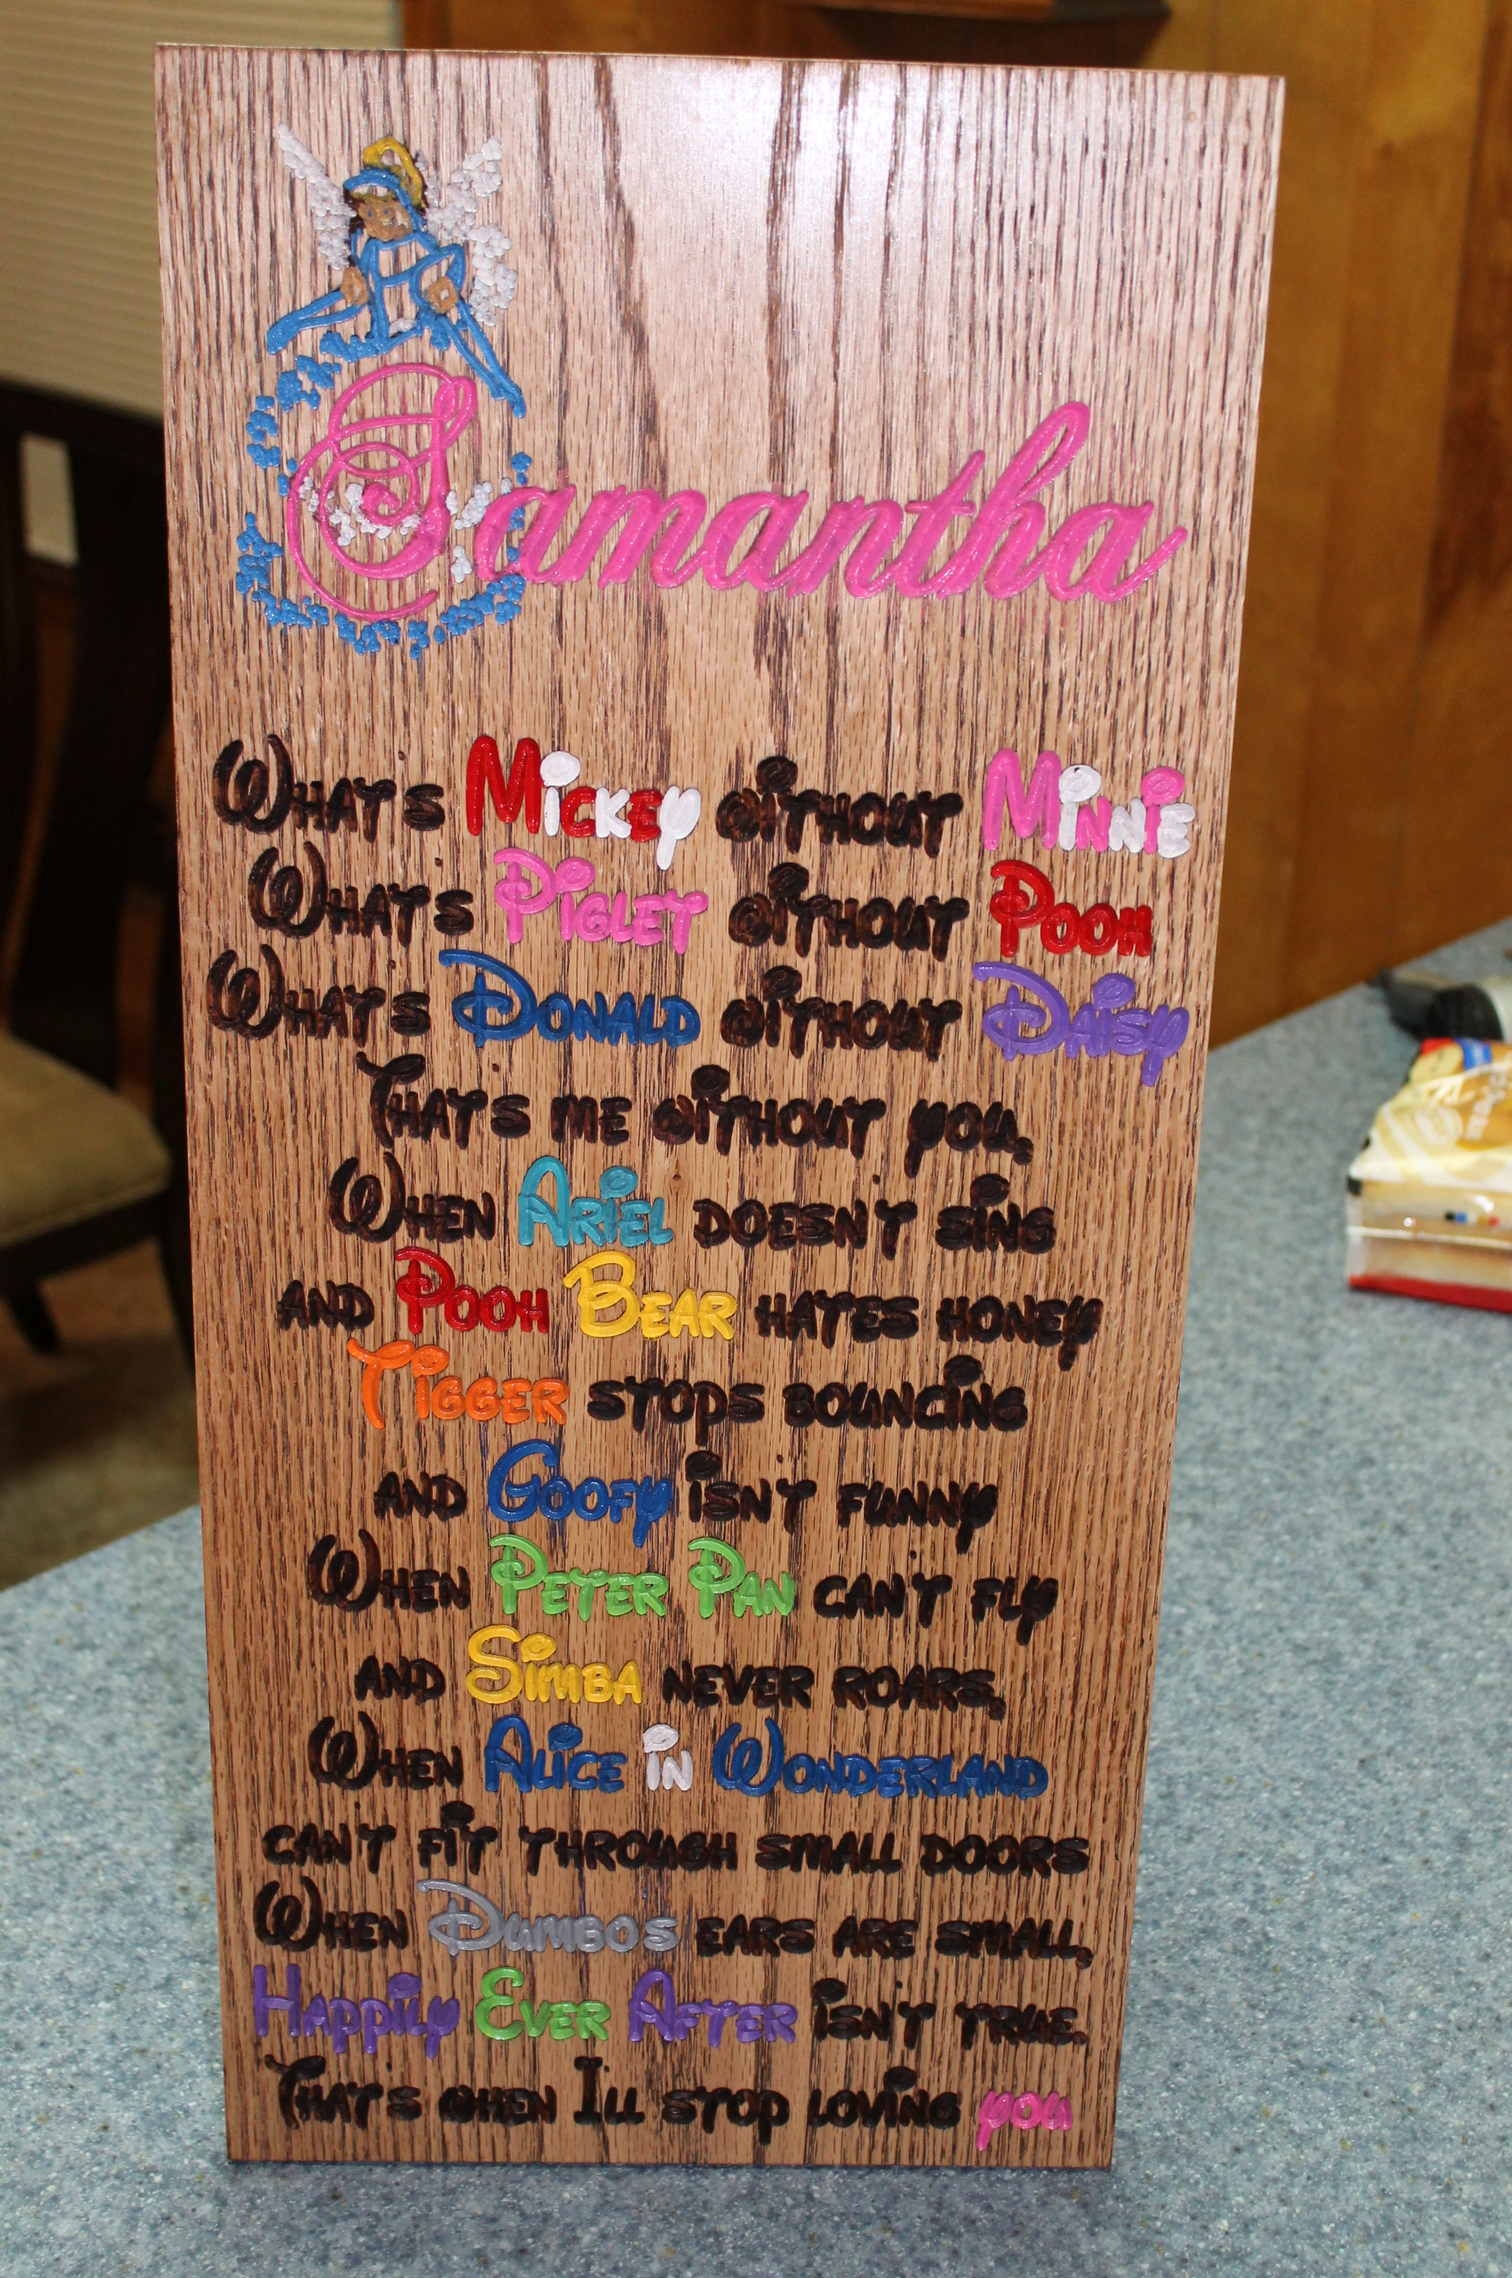 Samantha
What's Mickey without Minnie
What's Piglet without Pooh
What's Donald without Daisy
That's me without you,
When Ariel doesn't sing
and Pooh Bear hates honey
Tigger stops bouncing
and Goofy isn't funny
When Peter Pan can't fly
and Simba never roars,
When Alice in Wonderland
can't fit through small doors
When Dumbos ears are small,
Happily Ever After isn't true.
That's when I'll stop loving you